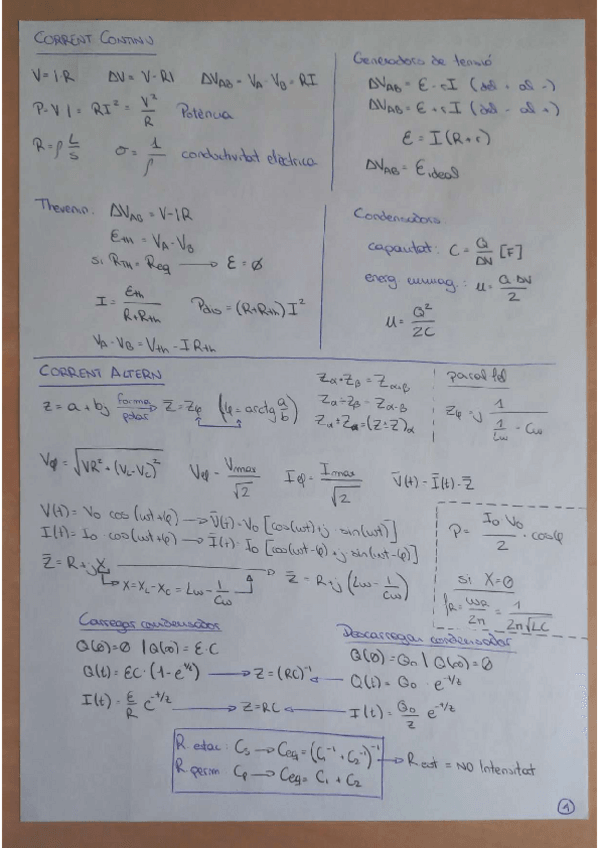 CORRENT CONTINU
V = I·R ΔV = V - RI ΔV_AB = V_A - V_B = RI
P = V·I = RI² = V²/R Potència
R = ρ L/S σ = 1/ρ conductivitat elèctrica
Generadors de tensió
ΔV_AB = ε - rI (del + al -)
ΔV_AB = ε + rI (del - al +)
ε = I(R+r)
ΔV_AB = ε ideal
Thevenin: ΔV_AB = V - IR
ε_th = V_A - V_B
si R_TH = R_eq → ε = ∅
I = ε_th / (R + R_th) P_dis = (R+R_th) I²
V_A - V_B = V_th - I R_th
Condensadors
capacitat: C = Q/ΔV [F]
energ. emmag.: u = Q·ΔV/2
u = Q²/2C
CORRENT ALTERN
z = a + bj forma polar → z̄ = z_φ (φ = arctg a/b)
Z_α · Z_β = Z_α+β
Z_α ÷ Z_β = Z_α-β
Z_α + Z_α = (Z + Z)_α
paral·lel
Z_φ = j 1/(1/Lω - Cω)
V_ef = √(VR² + (V_L - V_C)²) V_ef = V_max/√2 I_ef = I_max/√2 V̄(t) = Ī(t) · Z̄
V(t) = V₀ cos(ωt+φ) → V̄(t) = V₀ [cos(ωt) + j sin(ωt)]
I(t) = I₀ cos(ωt+φ) → Ī(t) = I₀ [cos(ωt-φ) + j sin(ωt-φ)]
Z̄ = R + jX → Z̄ = R + j(Lω - 1/Cω)
X = X_L - X_C = Lω - 1/Cω
P = I₀V₀/2 · cosφ
si X=0
f_R = ω_R/2π = 1/2π√LC
Carregar condensador
Q(0) = ∅ | Q(∞) = ε·C
Q(t) = εC·(1 - e^-t/z) → Z = (RC)⁻¹
I(t) = ε/R e^-t/z → Z = RC
Descarregar condensador
Q(0) = Q₀ | Q(∞) = ∅
Q(t) = Q₀ · e^-t/z
I(t) = Q₀/z e^-t/z
R estac: C_S → C_eq = (C₁⁻¹ + C₂⁻¹)⁻¹
R perim: C_P → C_eq = C₁ + C₂
= NO Intensitat
1